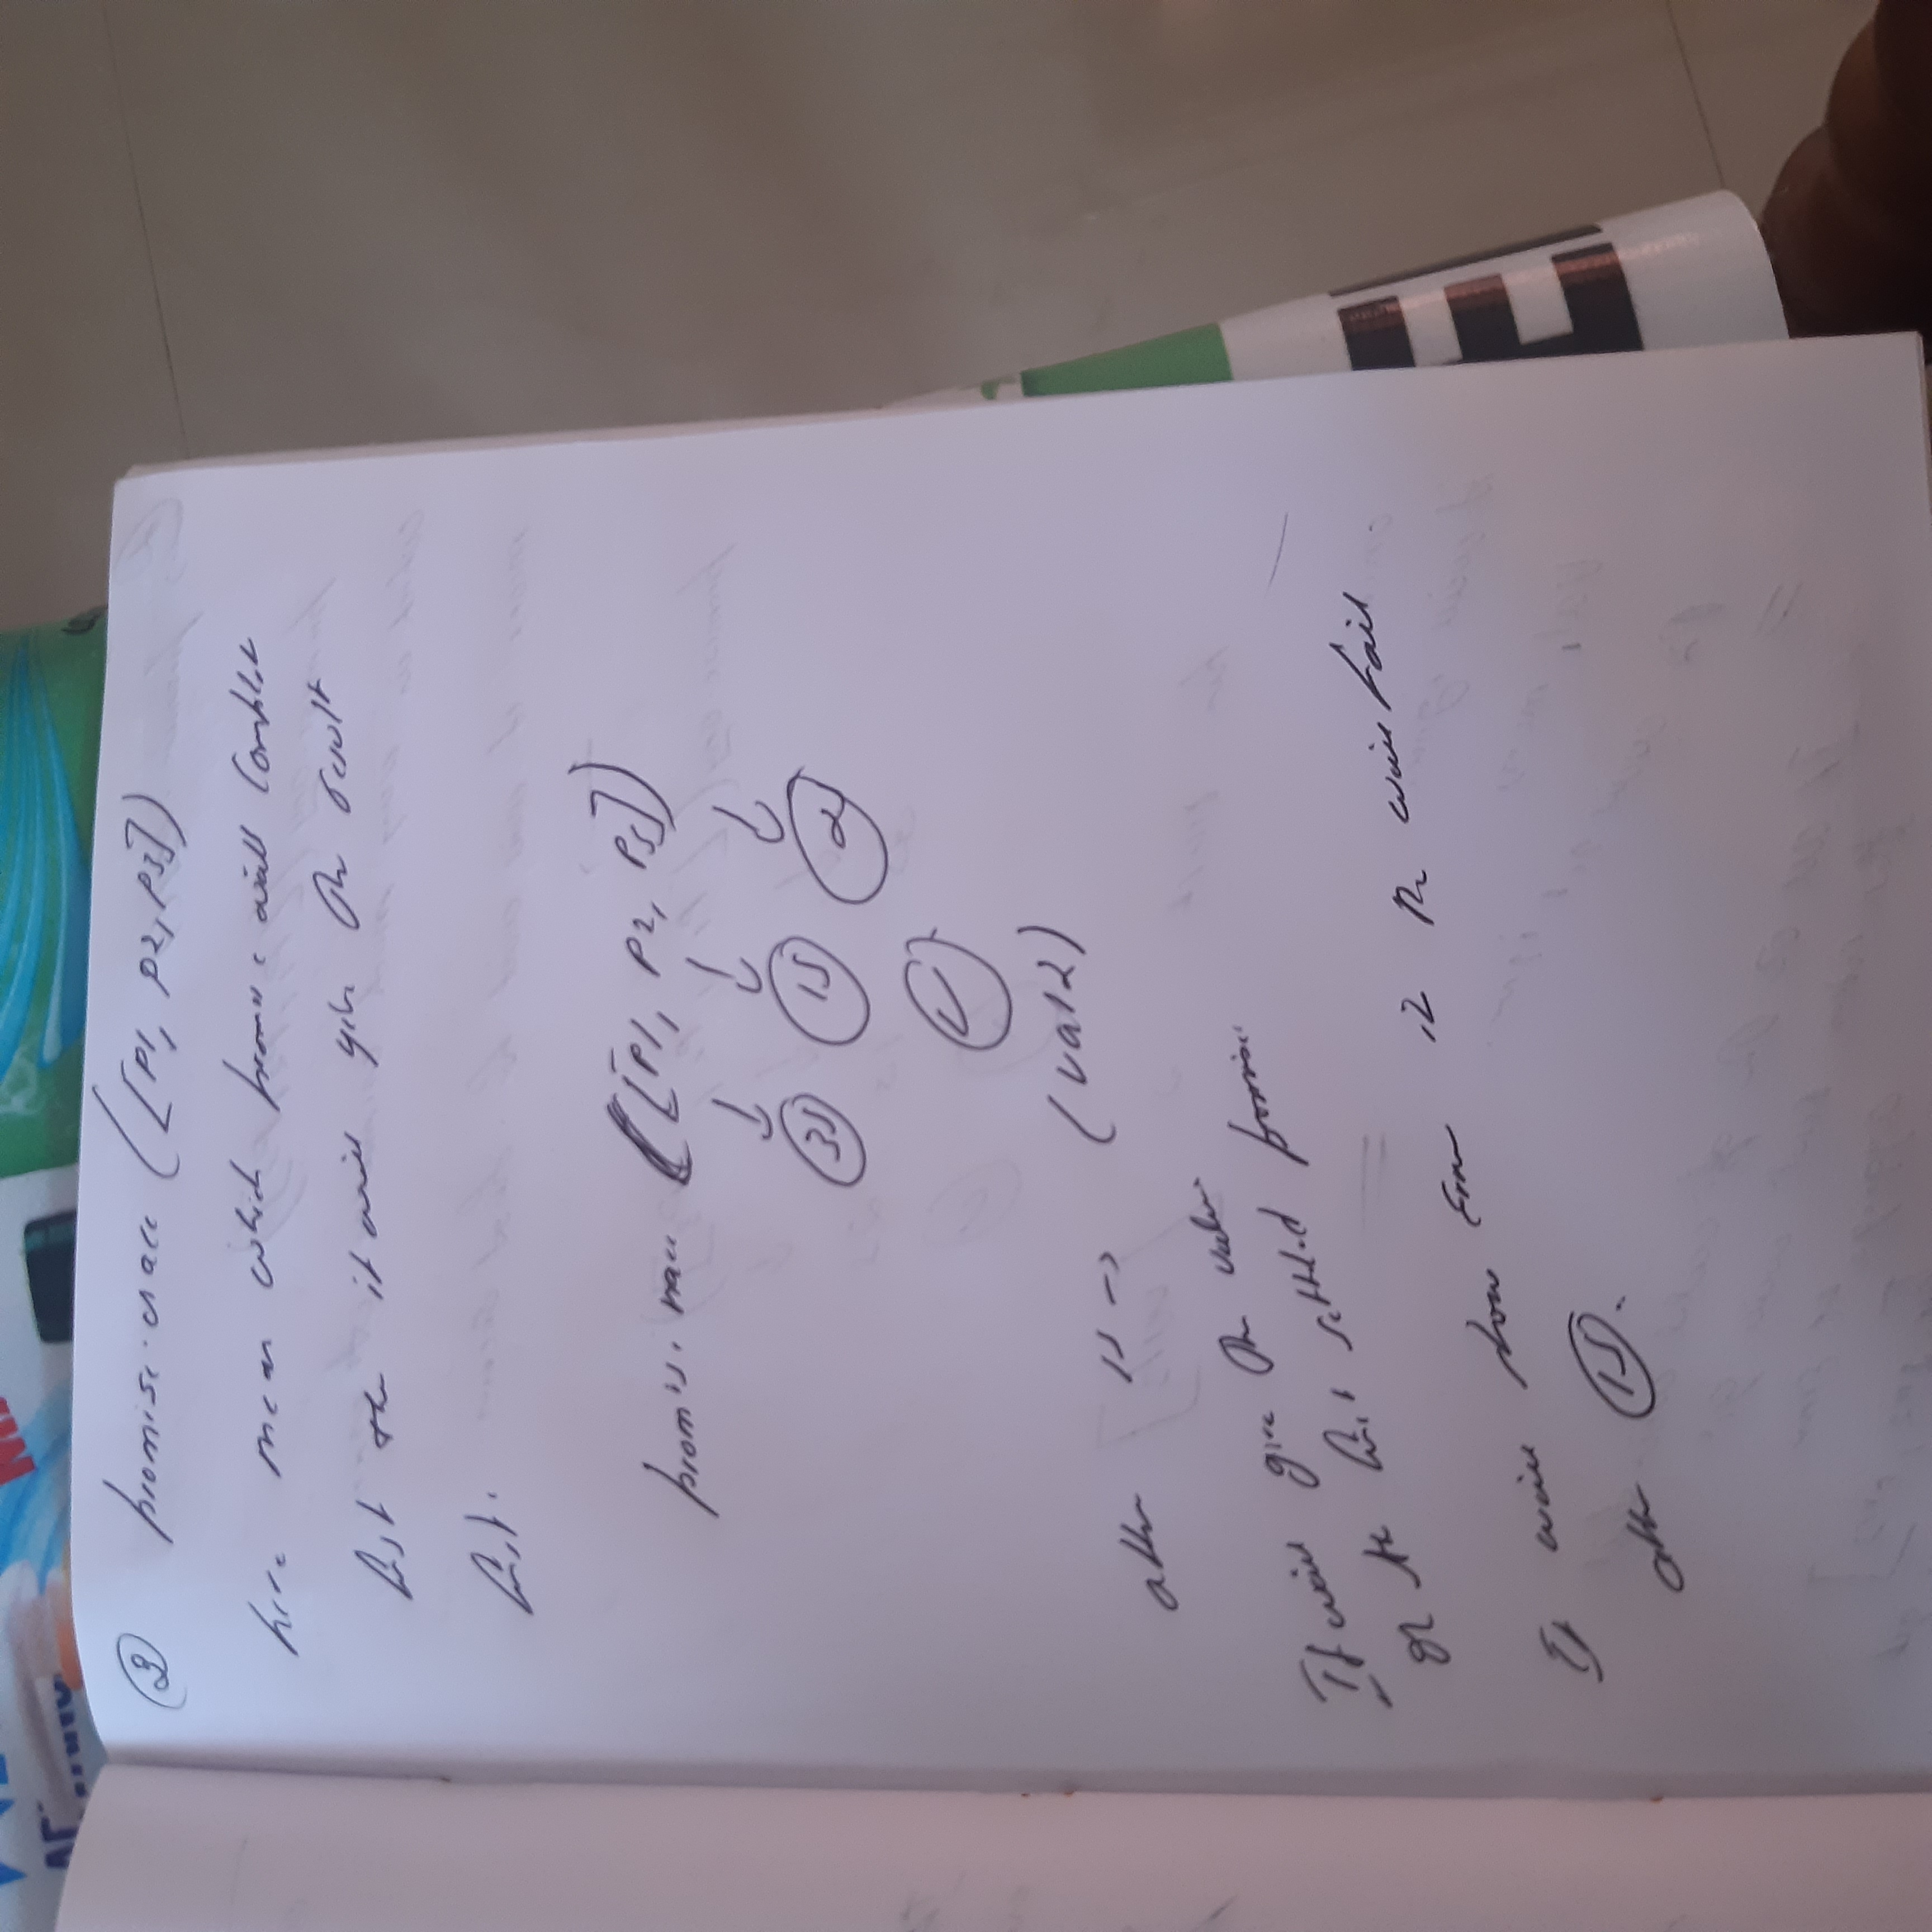 ③ promise.race ([P1, P2, P3])
here mean which promise will complet
first the it will give the result
first.
promise.race ([P1, P2, P3])
3s 1s 2s
after 1s -> (val2)
It will give the value
of the first settled promise
It will show Error if the will fail
after 1s.